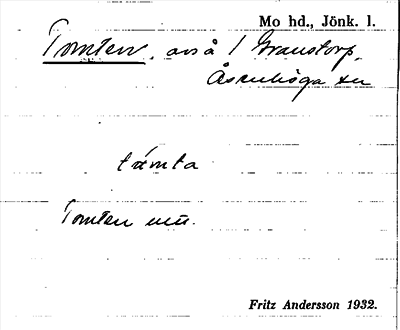 Mo hd., Jönk. l.
Tomten, avs å 1 Granstorp,
Åsenhöga sn
tɷ́mta
Tomten mu.
Fritz Andersson 1932.